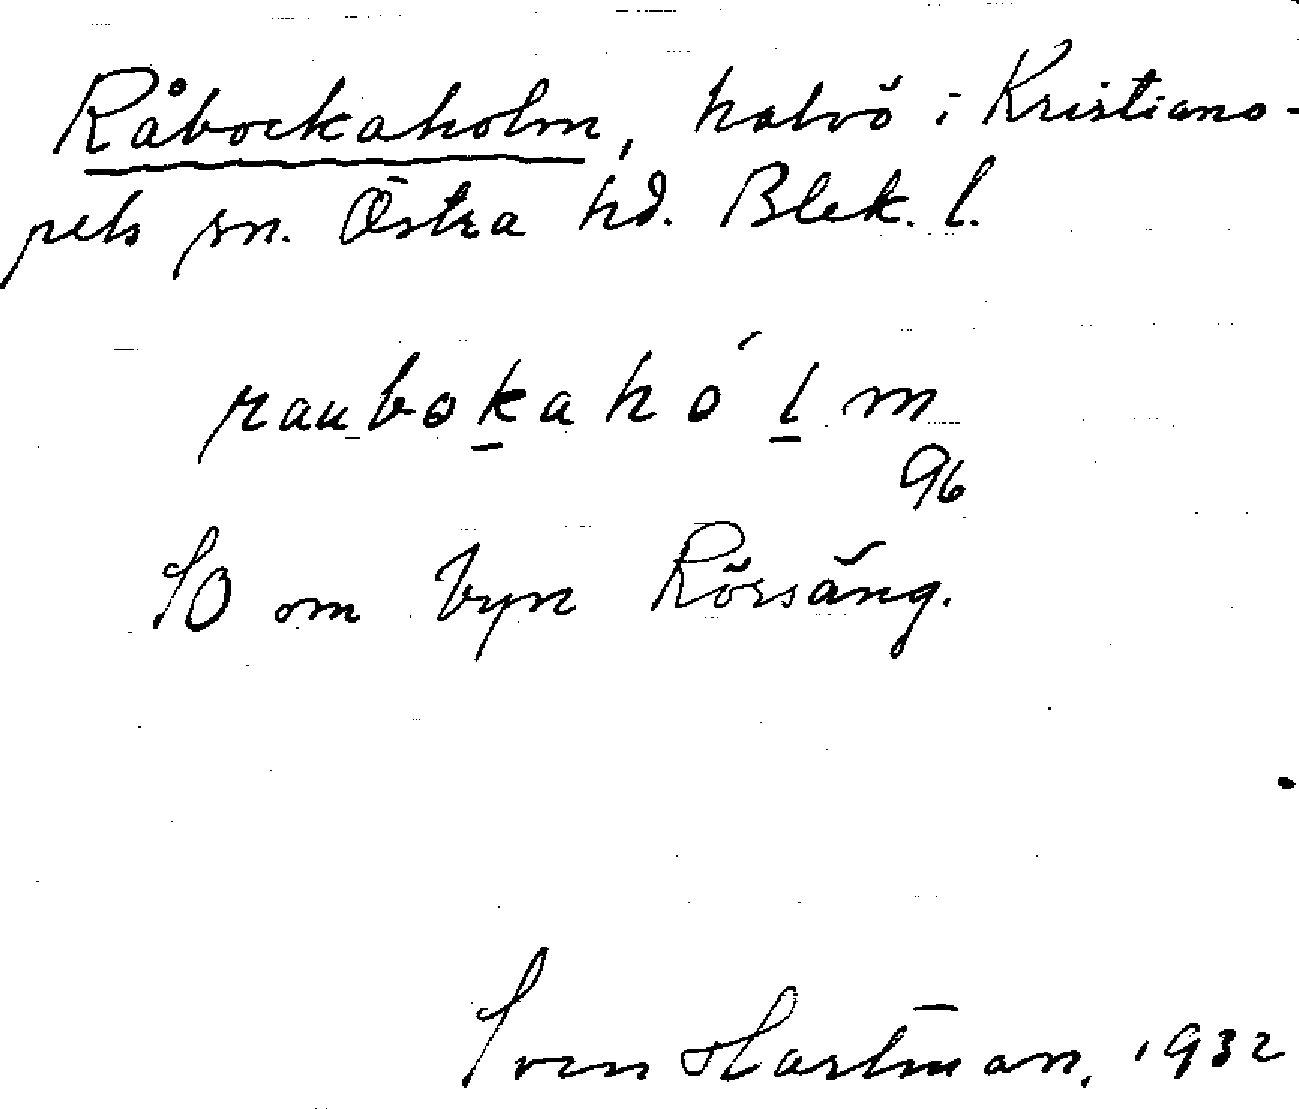 Råbockaholm, halvö i Kristiano-
pels sn. Östra hd. Blek. l.
raubokahó l m
96
SO om byn Rörsäng.
Sven Hartman, 1932